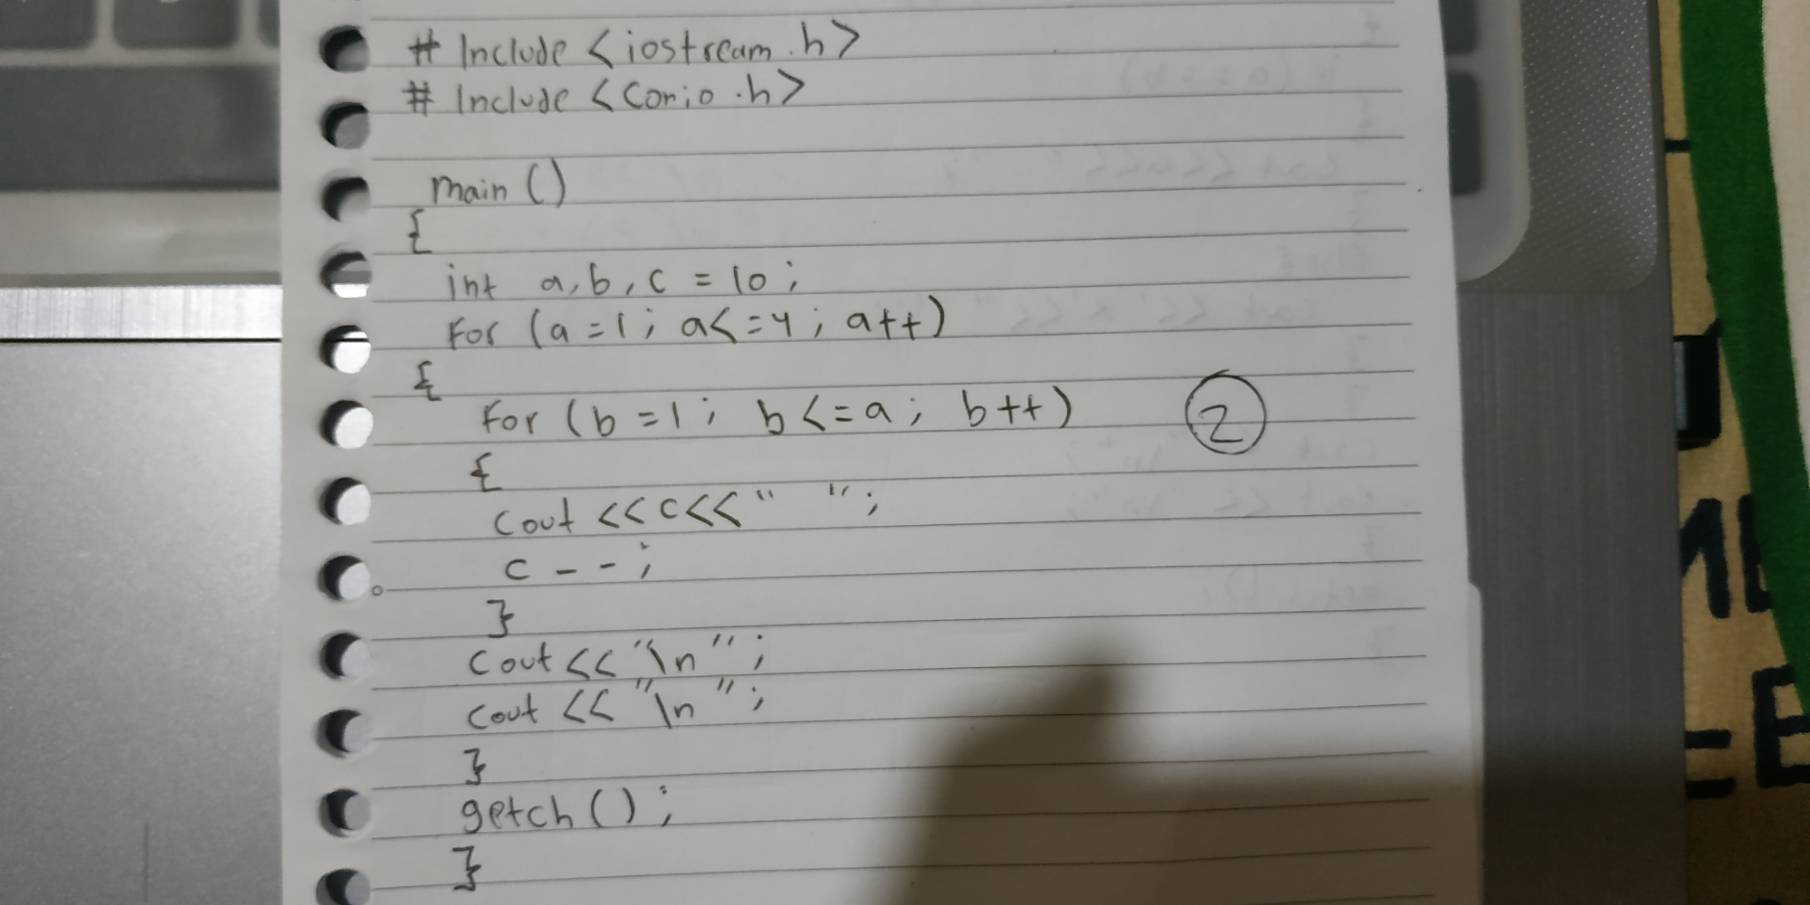 # Include <iostream.h>
# Include <conio.h>
main ()
{
int a, b, c = 10;
For (a = 1; a <= 4; a++)
{
For (b = 1; b <= a; b++)
2
{
Cout << c << " ";
c --;
}
Cout << "\n";
Cout << "\n";
}
getch();
}
ME
EE